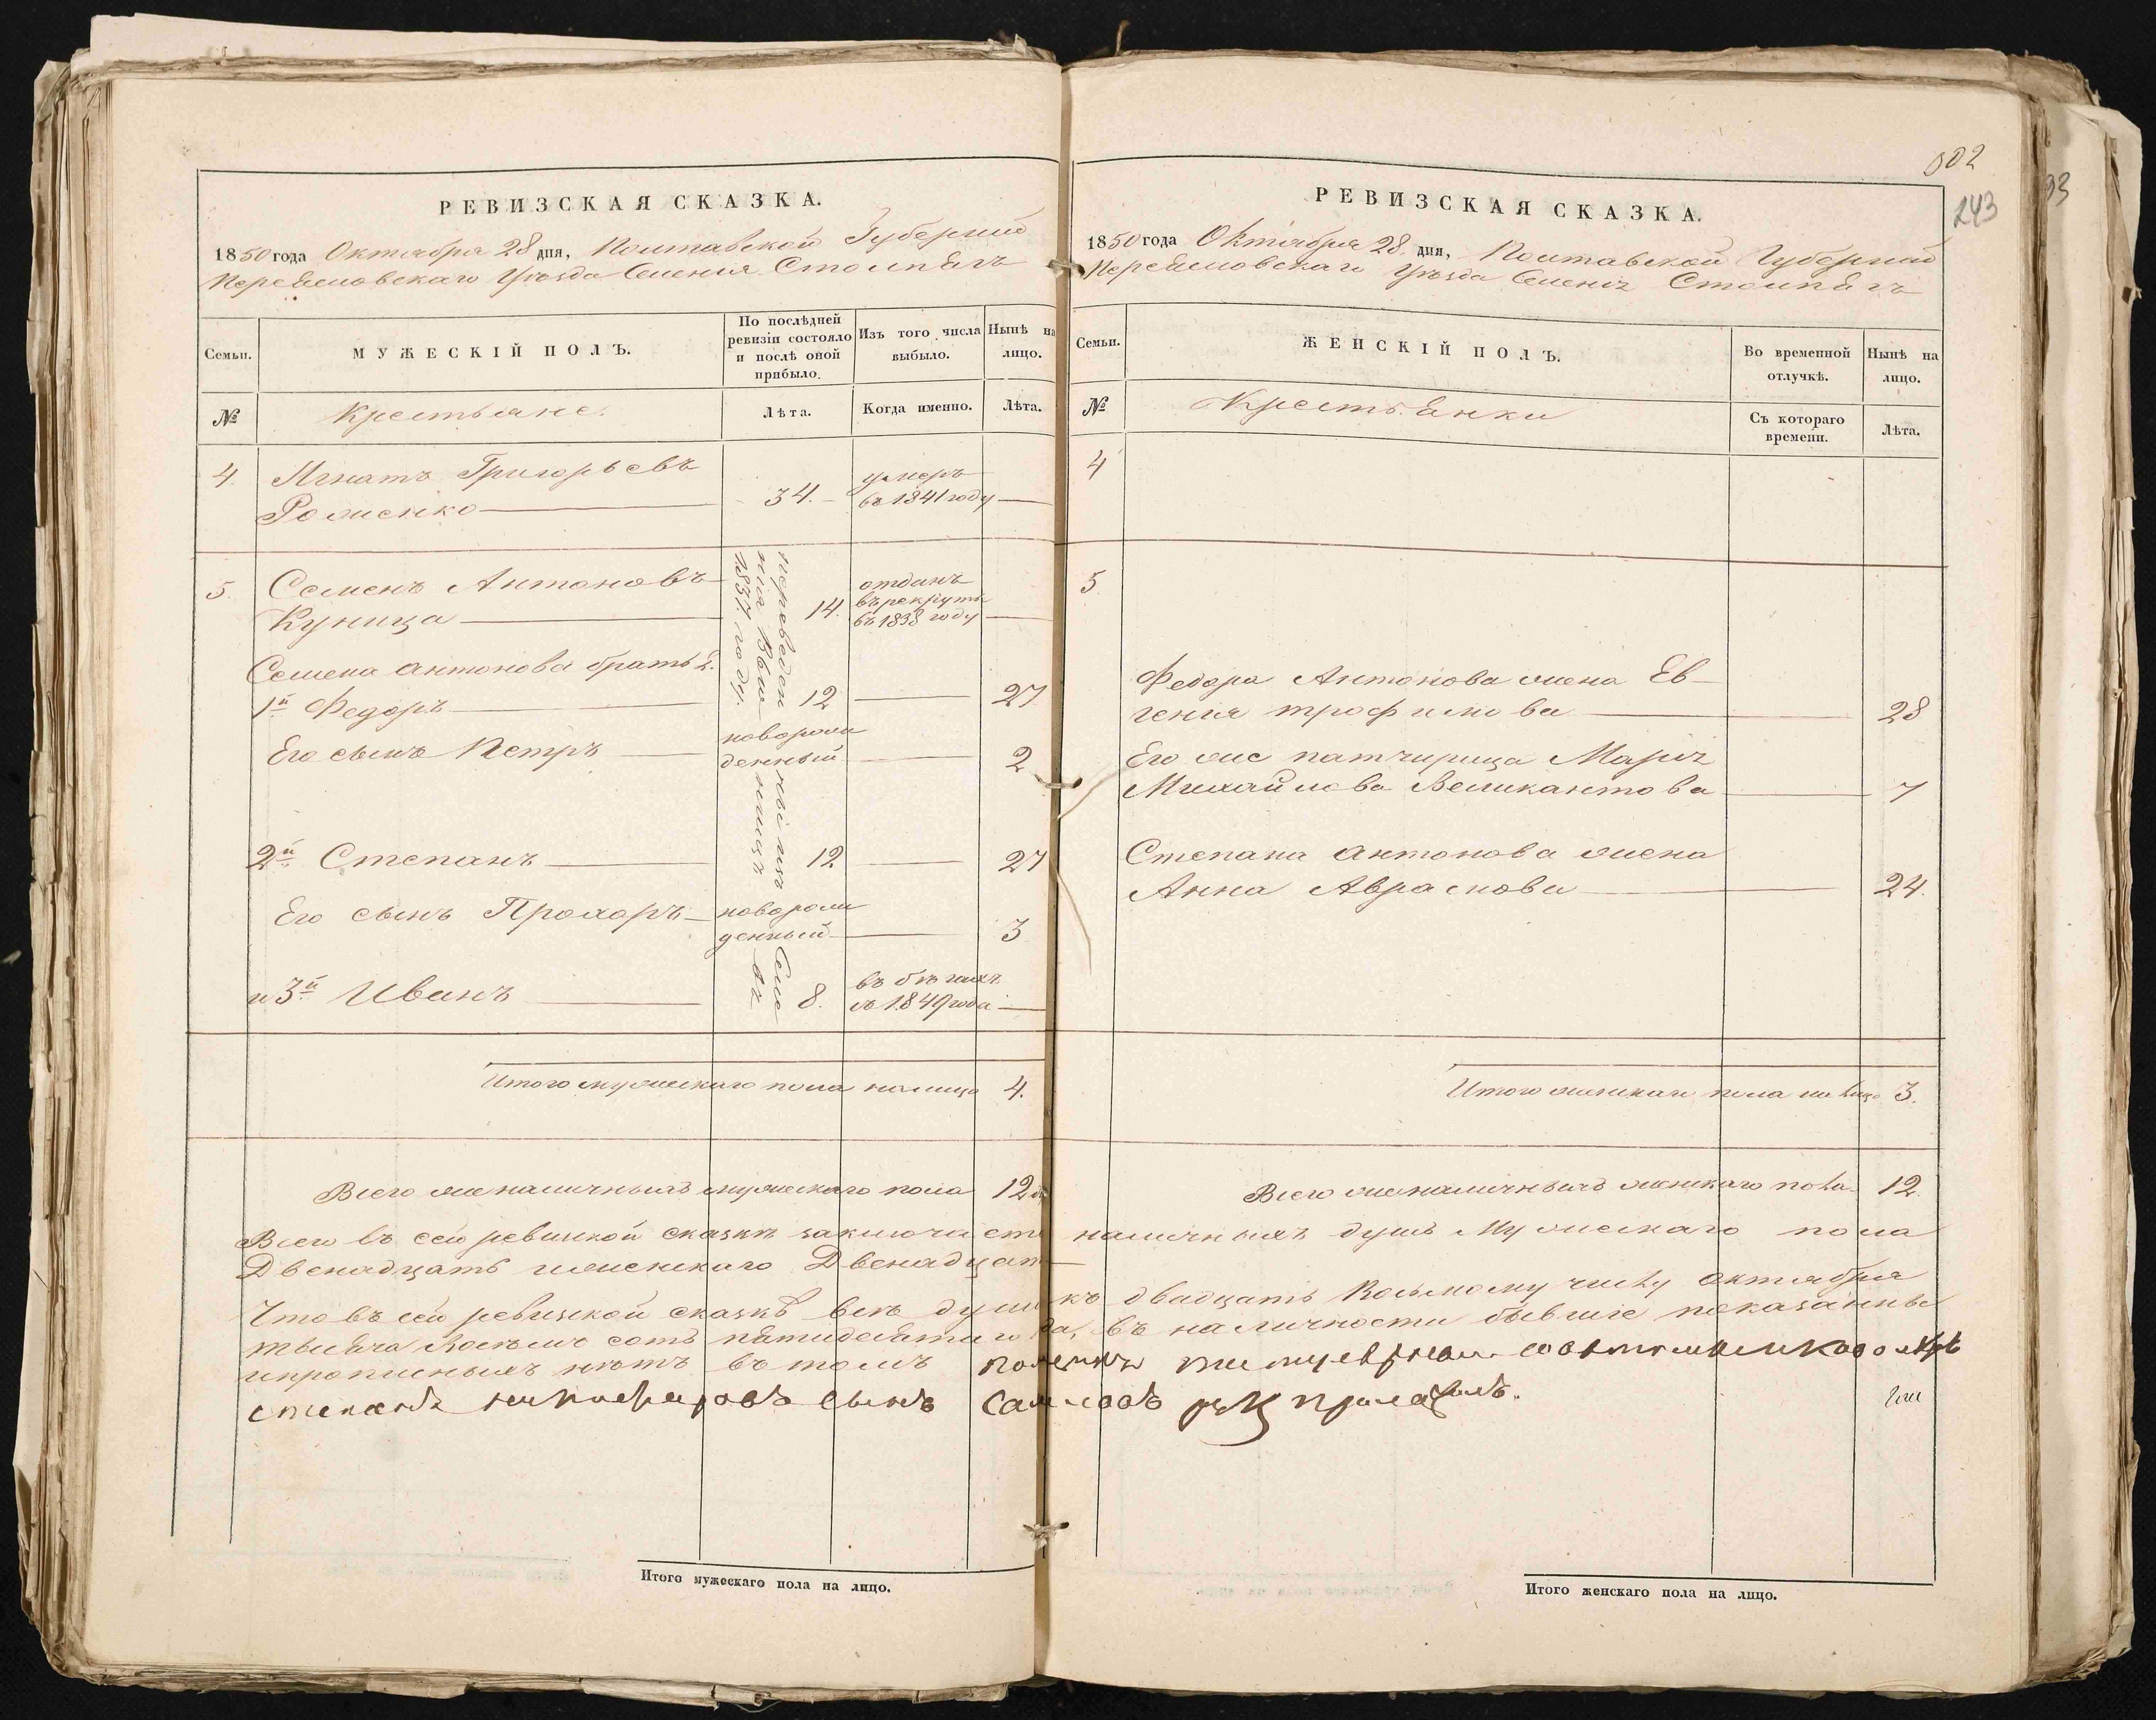 РЕВИЗСКАЯ СКАЗКА.
1850 года Октября 28 дня, Полтавской Губерніи
Переяславскаго Уѣзда Селенія Столпягъ
Семьи.
МУЖЕСКІЙ ПОЛЪ.
По послѣдней ревизіи состояло и послѣ оной прибыло.
Изъ того числа выбыло.
Нынѣ на лицо.
№
Крестьяне.
Лѣта.
Когда именно.
Лѣта.
4 Игнатъ Григорьевъ умеръ
Роменко 34. въ 1841 году
5. Семенъ Антоновъ отданъ
Куница 14. въ рекруты
въ 1838 году
переведен
1837 году.
Семена Антонова братья
1й Федоръ 12 27
Его сынъ Петръ новорож
денный 2
2й Степанъ 12 27
Его сынъ Прохоръ новорож
денный 3
и 3й Иванъ 8. въ бѣгахъ
съ 1849 года
Итого мужескаго пола налицо 4.
Всего же наличныхъ мужескаго пола 12
602
243
93
РЕВИЗСКАЯ СКАЗКА.
1850 года Октября 28 дня, Полтавской Губерніи
Переяславскаго Уѣзда Селенія Столпягъ
Семьи.
ЖЕНСКІЙ ПОЛЪ.
Во временной отлучкѣ.
Нынѣ на лицо.
№
Крестьянки
Съ котораго времени.
Лѣта.
4
5
Федора Антонова жена Ев-
генія трофимова 28
Его же патчирица Марія
Михайлова Великантова 7
Степана Антонова жена
Анна Аврамова 24.
Итого женскаго пола на лицо 3.
Всего же наличныхъ женскаго пола 12.
Всего въ сей ревизской сказкѣ заключается наличныхъ душъ Мужескаго пола
Двенадцать и женскаго Двенадцать
Что въ сей ревизской сказкѣ всѣ души къ двадцать Восьмому числу Октября
тысяча Восемь сотъ пятидесятаго года, въ наличности бывшіе показанны
и прописныхъ нѣтъ въ томъ
сынъ руку приложилъ.
Итого мужескаго пола на лицо.
Итого женскаго пола на лицо.